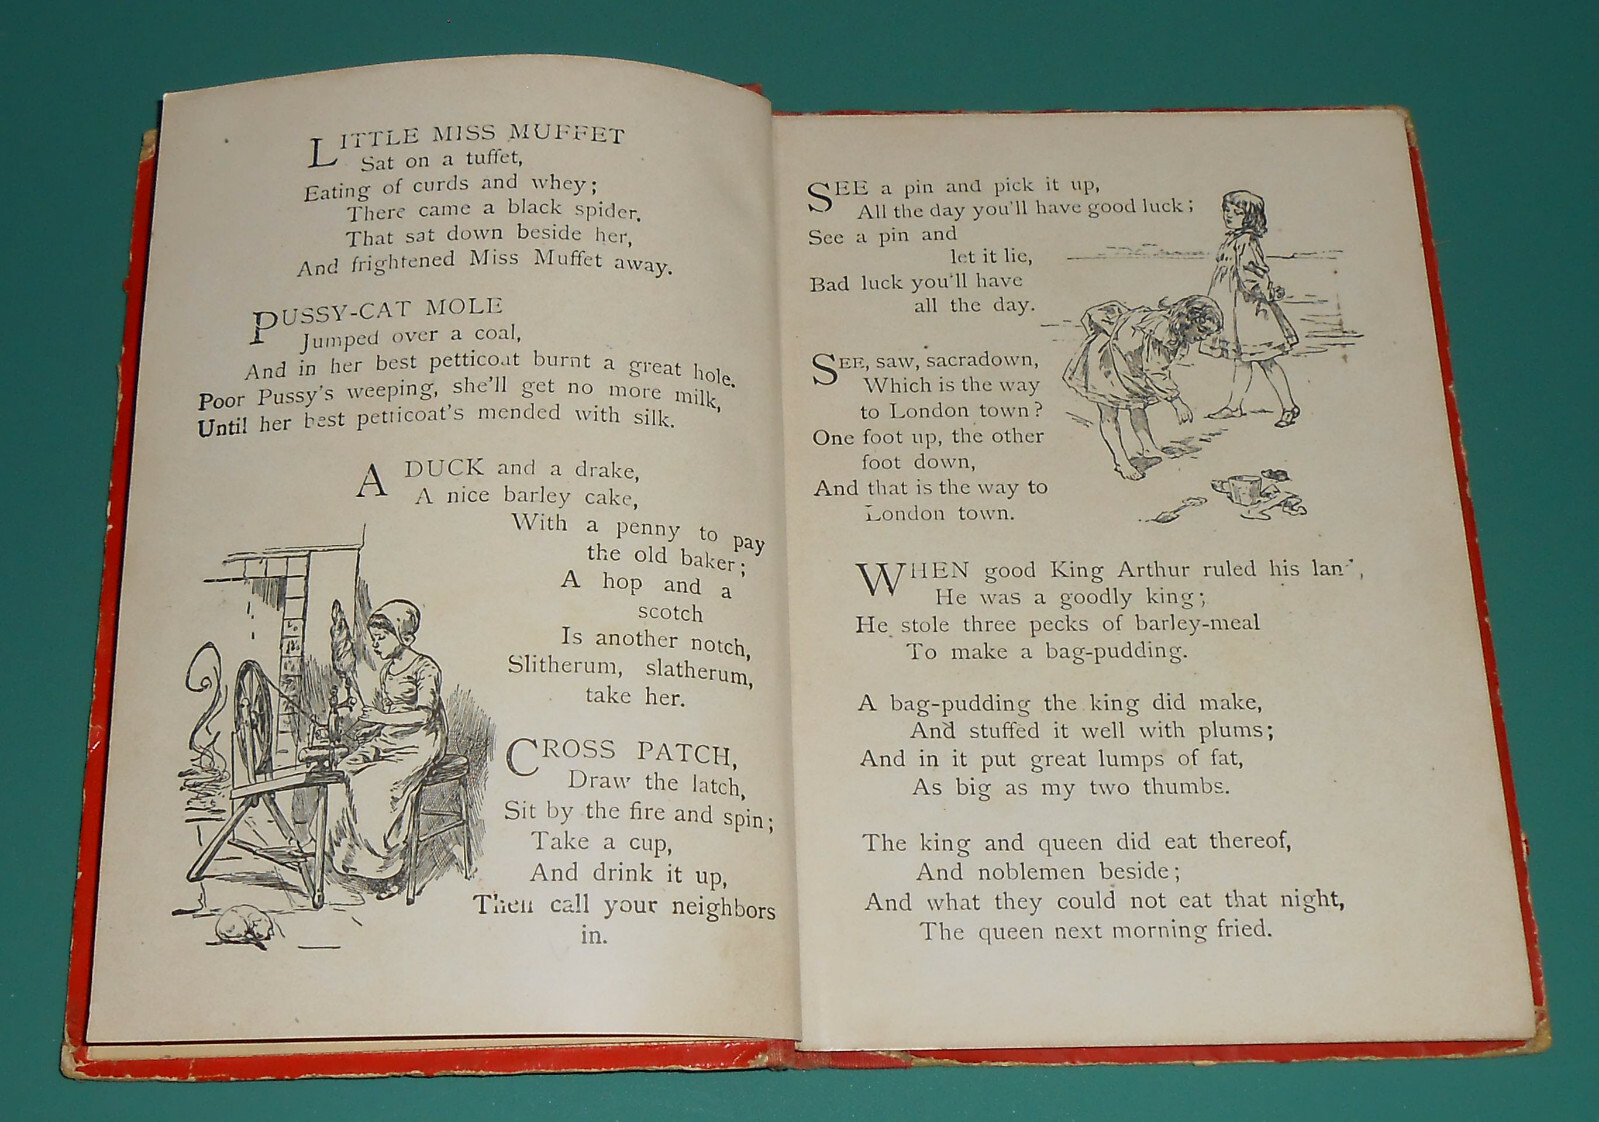 LITTLE MISS MUFFET
Sat on a tuffet,
Eating of curds and whey;
There came a black spider,
That sat down beside her,
And frightened Miss Muffet away.
PUSSY-CAT MOLE
Jumped over a coal,
And in her best petticoat burnt a great hole.
Poor Pussy's weeping, she'll get no more milk,
Until her best petticoat's mended with silk.
A DUCK and a drake,
A nice barley cake,
With a penny to pay
the old baker;
A hop and a
scotch
Is another notch,
Slitherum, slatherum,
take her.
CROSS PATCH,
Draw the latch,
Sit by the fire and spin;
Take a cup,
And drink it up,
Then call your neighbors
in.
SEE a pin and pick it up,
All the day you'll have good luck;
See a pin and
let it lie,
Bad luck you'll have
all the day.
SEE, saw, sacradown,
Which is the way
to London town?
One foot up, the other
foot down,
And that is the way to
London town.
WHEN good King Arthur ruled his land,
He was a goodly king;
He stole three pecks of barley-meal
To make a bag-pudding.
A bag-pudding the king did make,
And stuffed it well with plums;
And in it put great lumps of fat,
As big as my two thumbs.
The king and queen did eat thereof,
And noblemen beside;
And what they could not eat that night,
The queen next morning fried.